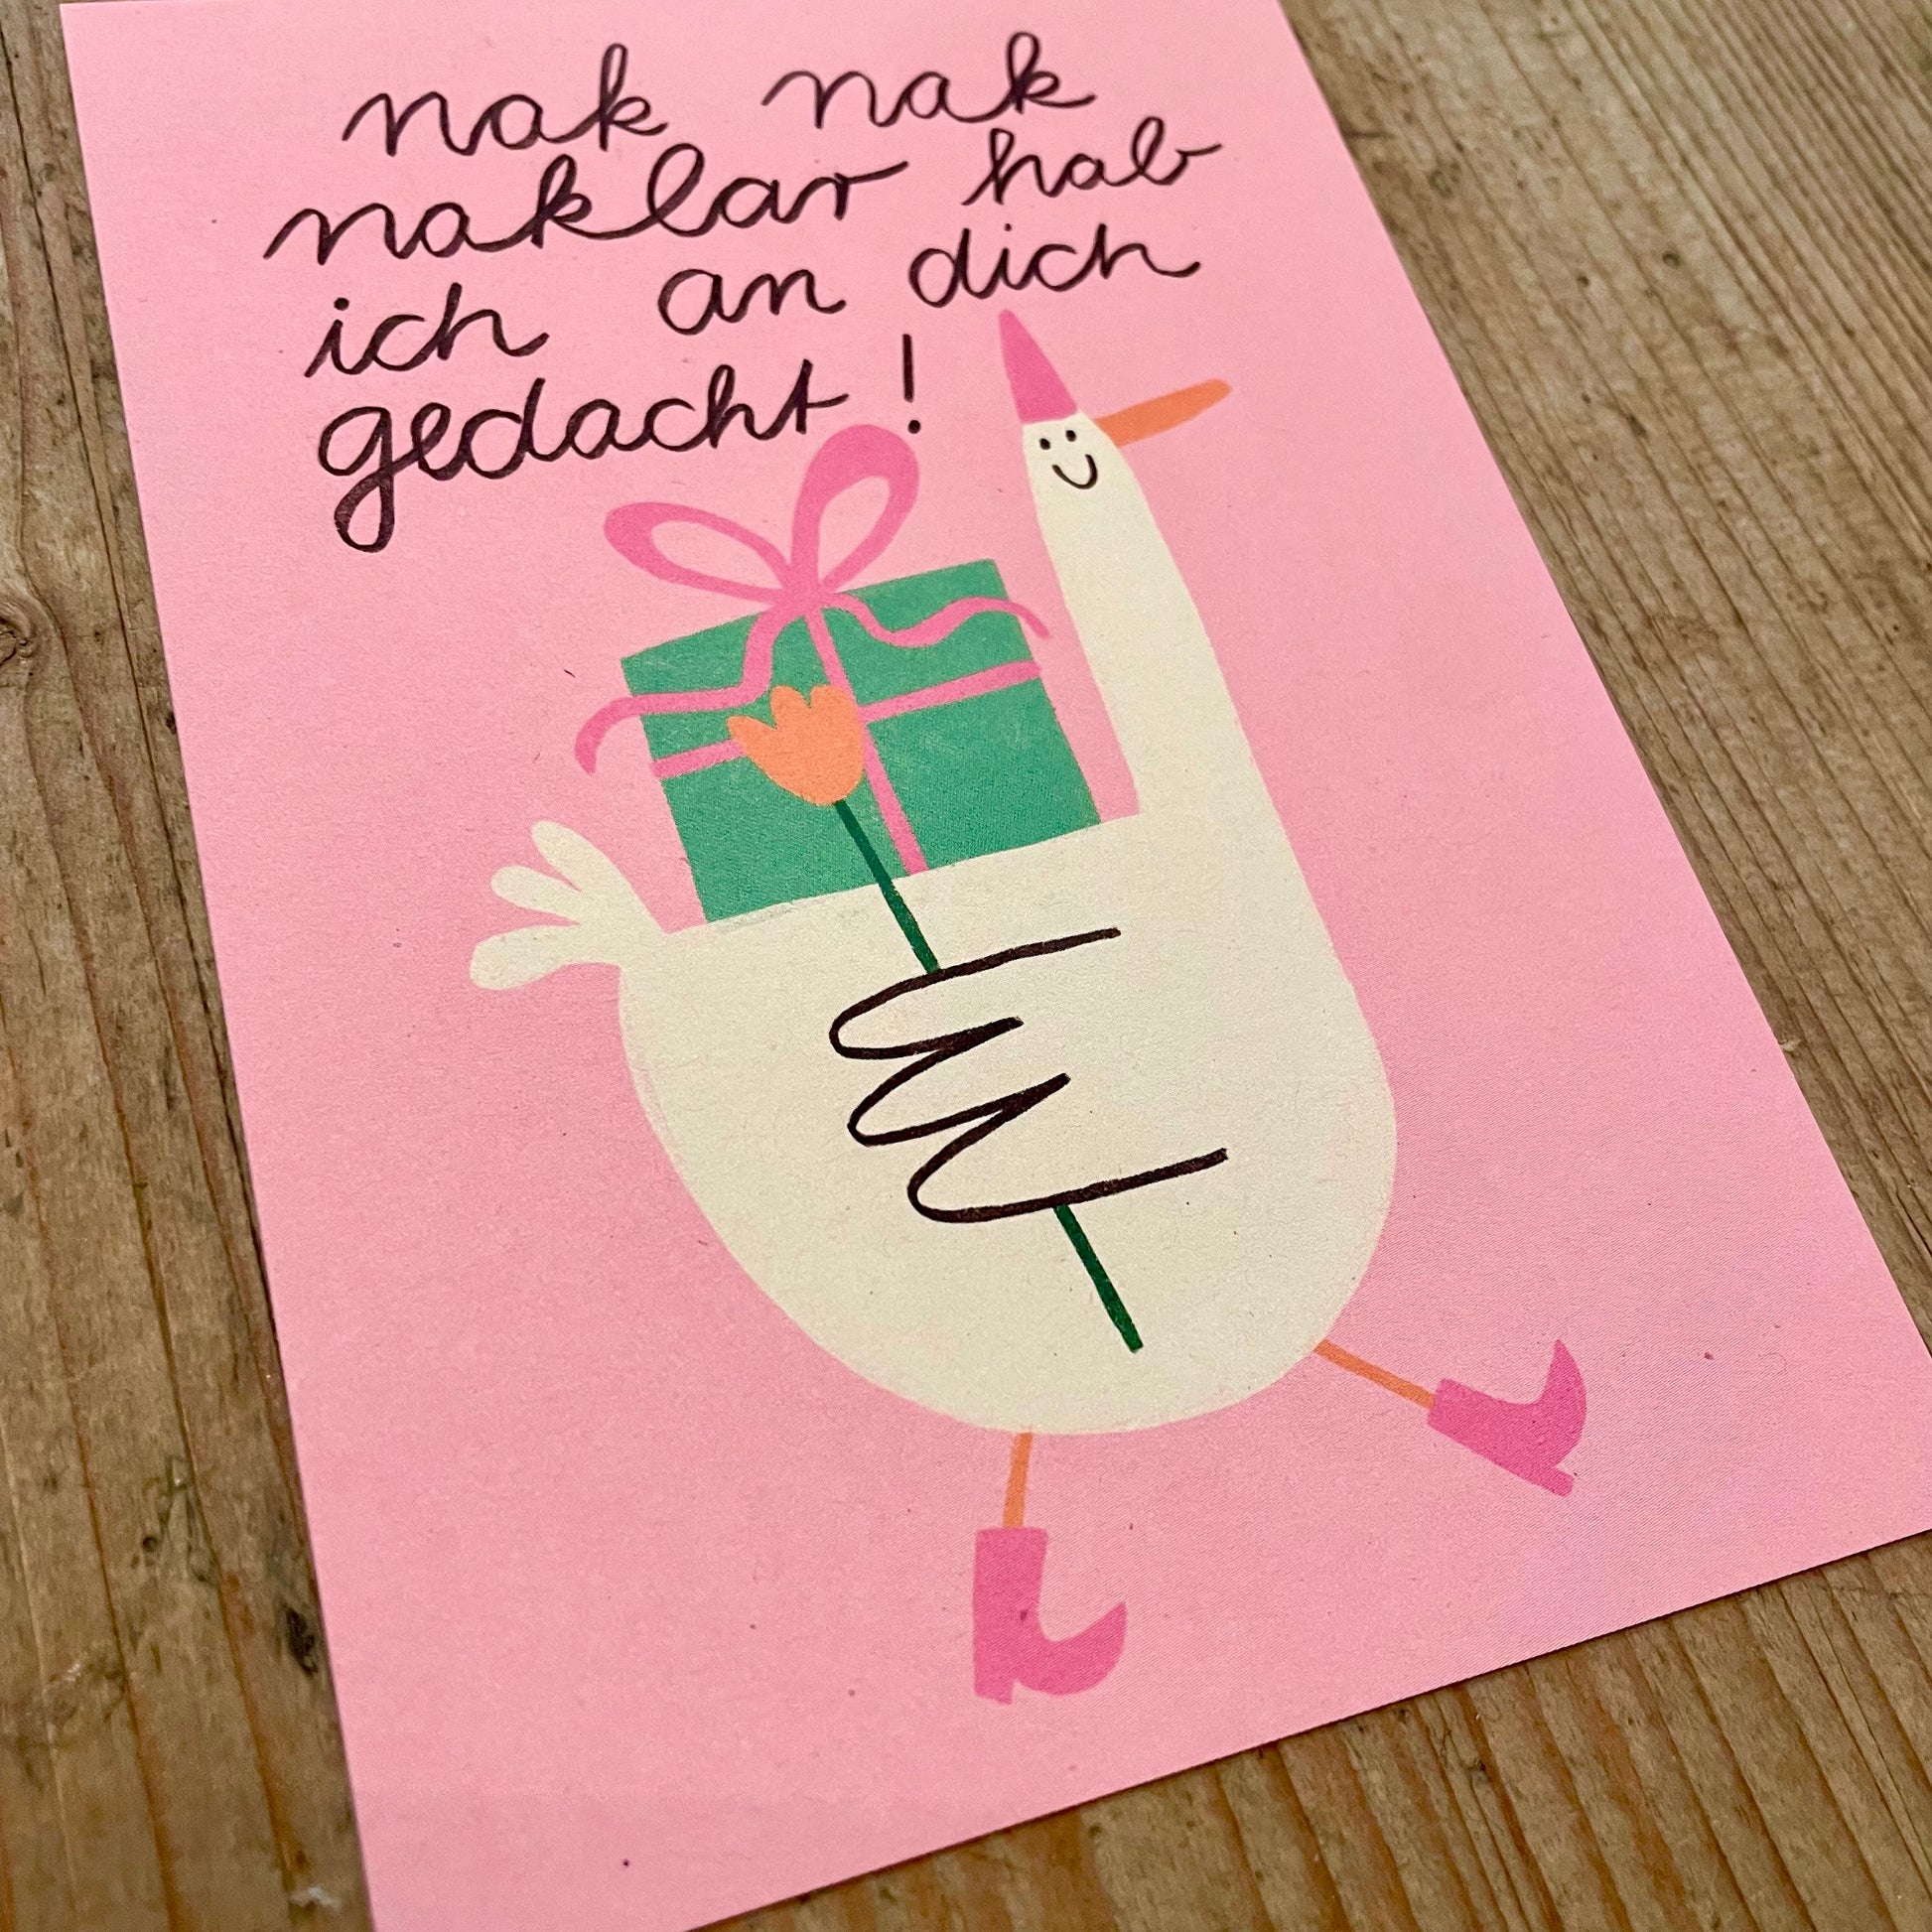 nak nak
naklar hab
ich an dich
gedacht!